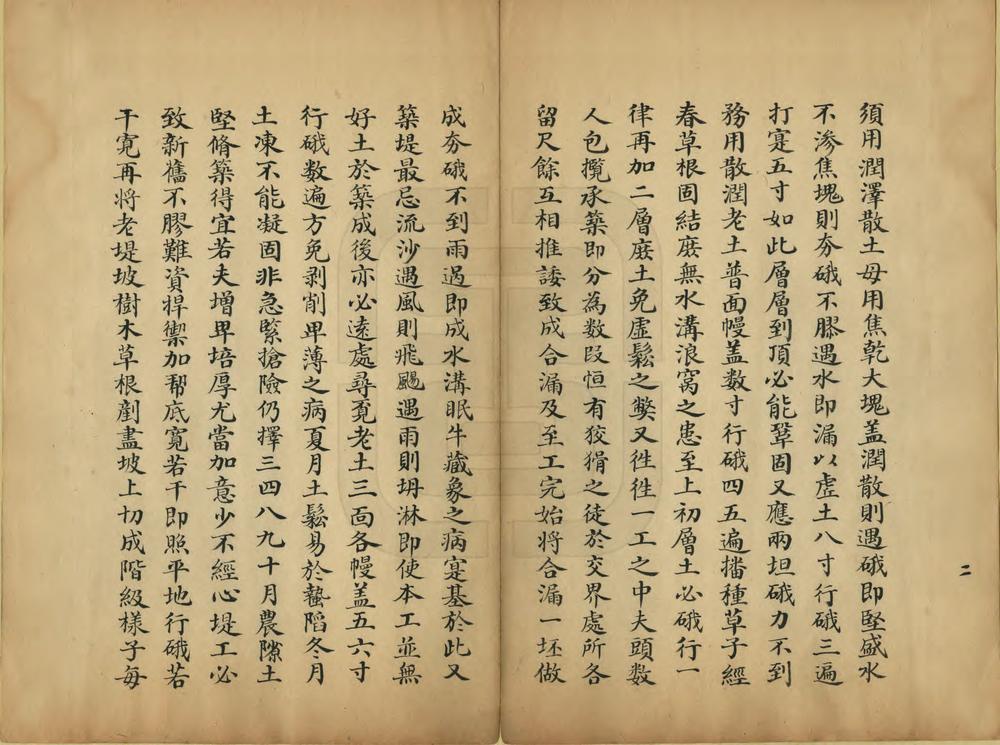 須用潤澤散土毋用焦乾大塊盖潤散則遇硪即堅盛水
不滲焦塊則夯硪不膠遇水即漏以虛土八寸行硪三遍
打寔五寸如此層層到頂必能鞏固又應兩坦硪力不到
務用散潤老土普面幔盖数寸行硪四五遍播種草子經
春草根固結庶無水溝浪窩之患至上初層土必硪行一
律再加二層庶土免虛鬆之獘又徃徃一工之中夫頭數
人包攬承築即分為数叚恒有狡猾之徒於交界處所各
留尺餘互相推諉致成合漏及至工完始將合漏一坯做
成夯硪不到雨過即成水溝眠牛藏象之病寔基於此又
築堤最忌流沙遇風則飛颺遇雨則坍淋即使本工並無
好土於築成後亦必遠處尋覔老土三面各幔盖五六寸
行硪数遍方免剥削卑薄之病夏月土鬆易於蟄陷冬月
土凍不能凝固非急緊搶險仍擇三四八九十月農隙土
堅脩築得宜若夫增卑培厚尤當加意少不經心堤工必
致新舊不膠難資捍禦加帮底寬若干即照平地行硪若
干寬再將老堤坡樹木草根剷盡坡上切成階級樣子每
二